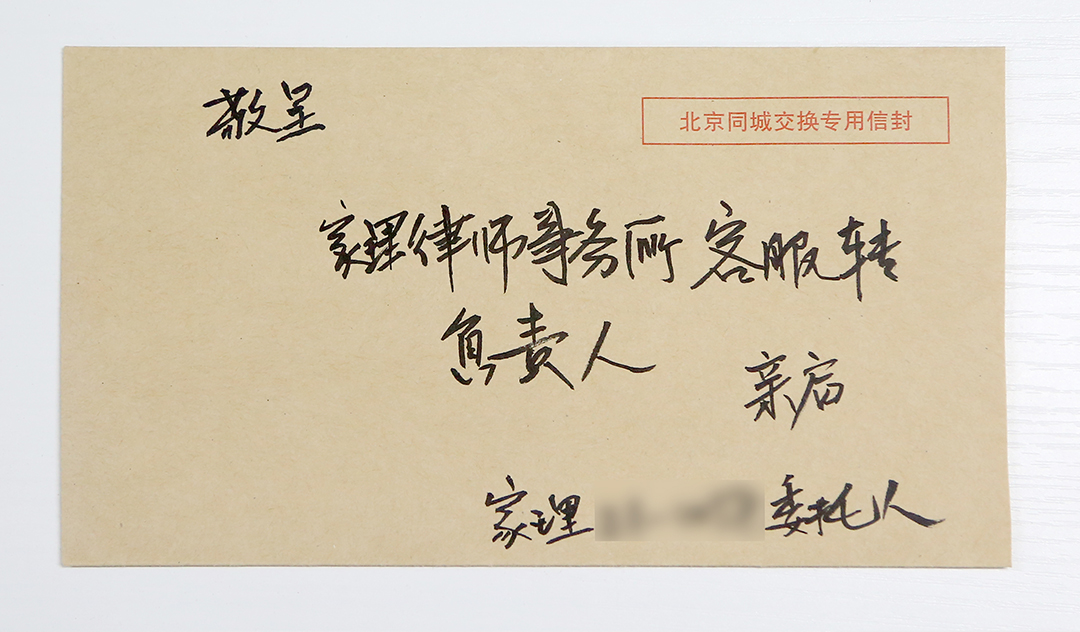 敬呈
北京同城交换专用信封
家理律师事务所 客服转
负责人
亲启
家理 委托人